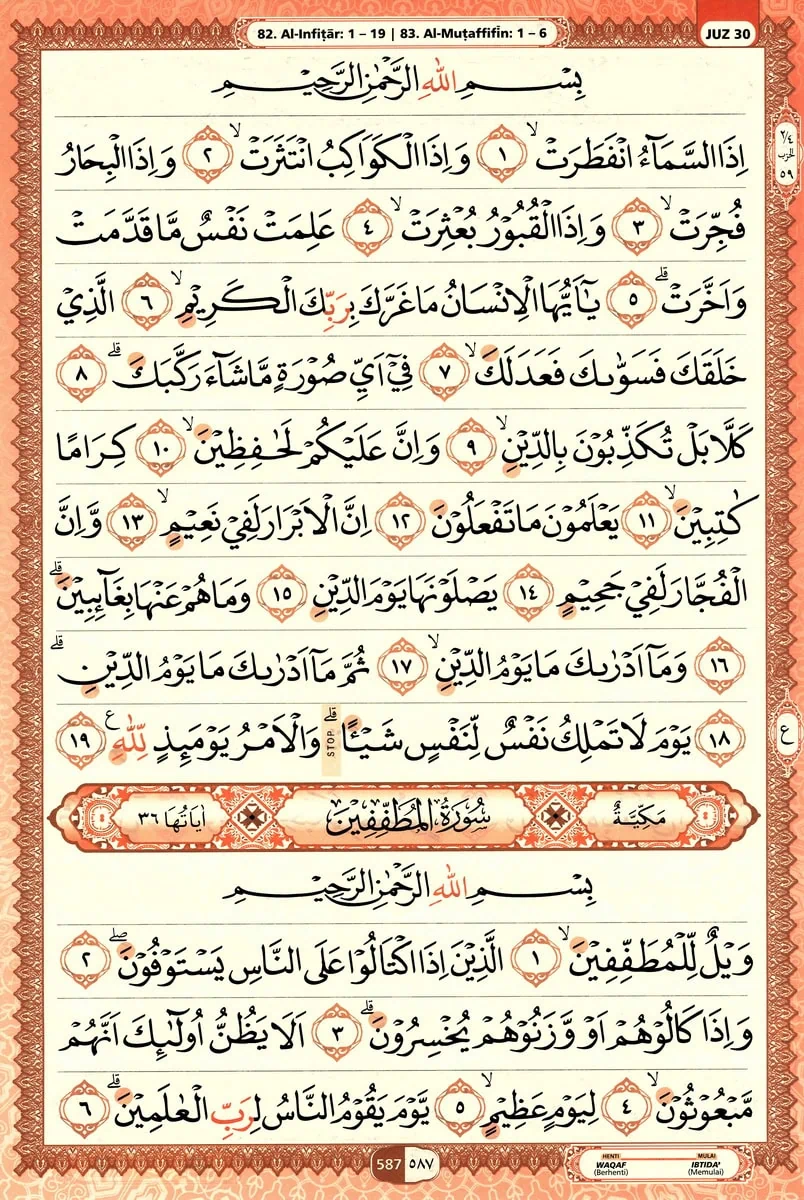 82. Al-Infiṭār: 1 – 19 | 83. Al-Muṭaffifīn: 1 – 6
JUZ 30
بِسْمِ اللّٰهِ الرَّحْمٰنِ الرَّحِيْمِ
٢/٤
الحزب
٥٩
اِذَا السَّمَاۤءُ انْفَطَرَتْۙ ١ وَاِذَا الْكَوَاكِبُ انْتَثَرَتْۙ ٢ وَاِذَا الْبِحَارُ
فُجِّرَتْۙ ٣ وَاِذَا الْقُبُوْرُ بُعْثِرَتْۙ ٤ عَلِمَتْ نَفْسٌ مَّا قَدَّمَتْ
وَاَخَّرَتْۗ ٥ يٰٓاَيُّهَا الْاِنْسَانُ مَا غَرَّكَ بِرَبِّكَ الْكَرِيْمِۙ ٦ الَّذِيْ
خَلَقَكَ فَسَوّٰىكَ فَعَدَلَكَۙ ٧ فِيْٓ اَيِّ صُوْرَةٍ مَّا شَاۤءَ رَكَّبَكَۗ ٨
كَلَّا بَلْ تُكَذِّبُوْنَ بِالدِّيْنِۙ ٩ وَاِنَّ عَلَيْكُمْ لَحٰفِظِيْنَۙ ١٠ كِرَامًا
كٰتِبِيْنَۙ ١١ يَعْلَمُوْنَ مَا تَفْعَلُوْنَ ١٢ اِنَّ الْاَبْرَارَ لَفِيْ نَعِيْمٍۙ ١٣ وَّاِنَّ
الْفُجَّارَ لَفِيْ جَحِيْمٍ ١٤ يَصْلَوْنَهَا يَوْمَ الدِّيْنِ ١٥ وَمَا هُمْ عَنْهَا بِغَاۤىِٕبِيْنَۗ
١٦ وَمَآ اَدْرٰىكَ مَا يَوْمُ الدِّيْنِۙ ١٧ ثُمَّ مَآ اَدْرٰىكَ مَا يَوْمُ الدِّيْنِۗ
١٨ يَوْمَ لَا تَمْلِكُ نَفْسٌ لِّنَفْسٍ شَيْـًٔاۗ STOP وَالْاَمْرُ يَوْمَىِٕذٍ لِّلّٰهِ ࣖ ١٩
ع
مَكِّيَّةٌ سُوْرَةُ الْمُطَفِّفِيْنَ اٰيَاتُهَا ٣٦
بِسْمِ اللّٰهِ الرَّحْمٰنِ الرَّحِيْمِ
وَيْلٌ لِّلْمُطَفِّفِيْنَۙ ١ الَّذِيْنَ اِذَا اكْتَالُوْا عَلَى النَّاسِ يَسْتَوْفُوْنَۖ ٢
وَاِذَا كَالُوْهُمْ اَوْ وَّزَنُوْهُمْ يُخْسِرُوْنَۗ ٣ اَلَا يَظُنُّ اُولٰۤىِٕكَ اَنَّهُمْ
مَّبْعُوْثُوْنَۙ ٤ لِيَوْمٍ عَظِيْمٍۙ ٥ يَّوْمَ يَقُوْمُ النَّاسُ لِرَبِّ الْعٰلَمِيْنَۗ ٦
587 ٥٨٧
HENTI MULAI
WAQAF IBTIDA'
(Berhenti) (Memulai)